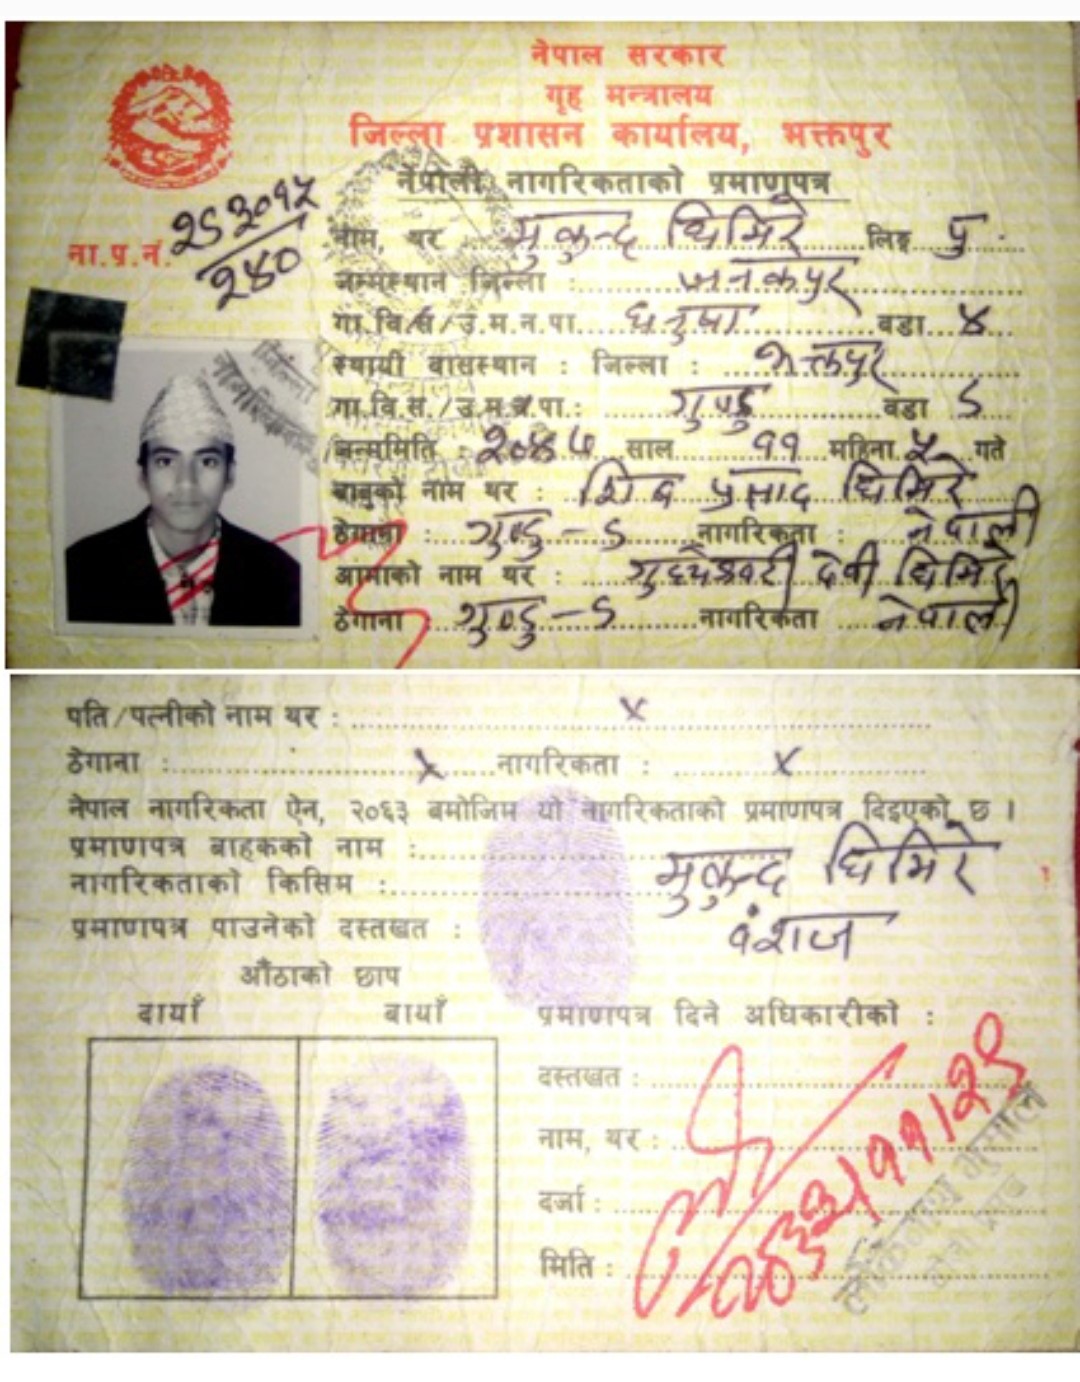 नेपाल सरकार
गृह मन्त्रालय
जिल्ला प्रशासन कार्यालय, भक्तपुर
नेपाली नागरिकताको प्रमाणपत्र
ना.प्र.नं.
नाम, थर मुकुन्द घिमिरे लिङ्ग पु
जन्मस्थान जिल्ला : जनकपुर
गा.वि.स/उ.म.न.पा. धनुषा वडा ४
स्थायी बासस्थान : जिल्ला : भक्तपुर
गा.वि.स./उ.म.न.पा.: गुण्डु वडा ८
जन्ममिति : साल ११ महिना ५ गते
बाबुको नाम थर : शिव प्रसाद घिमिरे
ठेगाना : गुण्डु-८ नागरिकता : नेपाली
आमाको नाम थर : गुह्येश्वरी देवी घिमिरे
ठेगाना गुण्डु-८ नागरिकता नेपाली
पति/पत्नीको नाम थर : x
ठेगाना : x नागरिकता : x
नेपाल नागरिकता ऐन, २०६३ बमोजिम यो नागरिकताको प्रमाणपत्र दिइएको छ ।
प्रमाणपत्र बाहकको नाम : मुकुन्द घिमिरे
नागरिकताको किसिम : वंशज
प्रमाणपत्र पाउनेको दस्तखत :
औंठाको छाप
दायाँ बायाँ
प्रमाणपत्र दिने अधिकारीको :
दस्तखत :
नाम, थर :
दर्जा :
मिति :